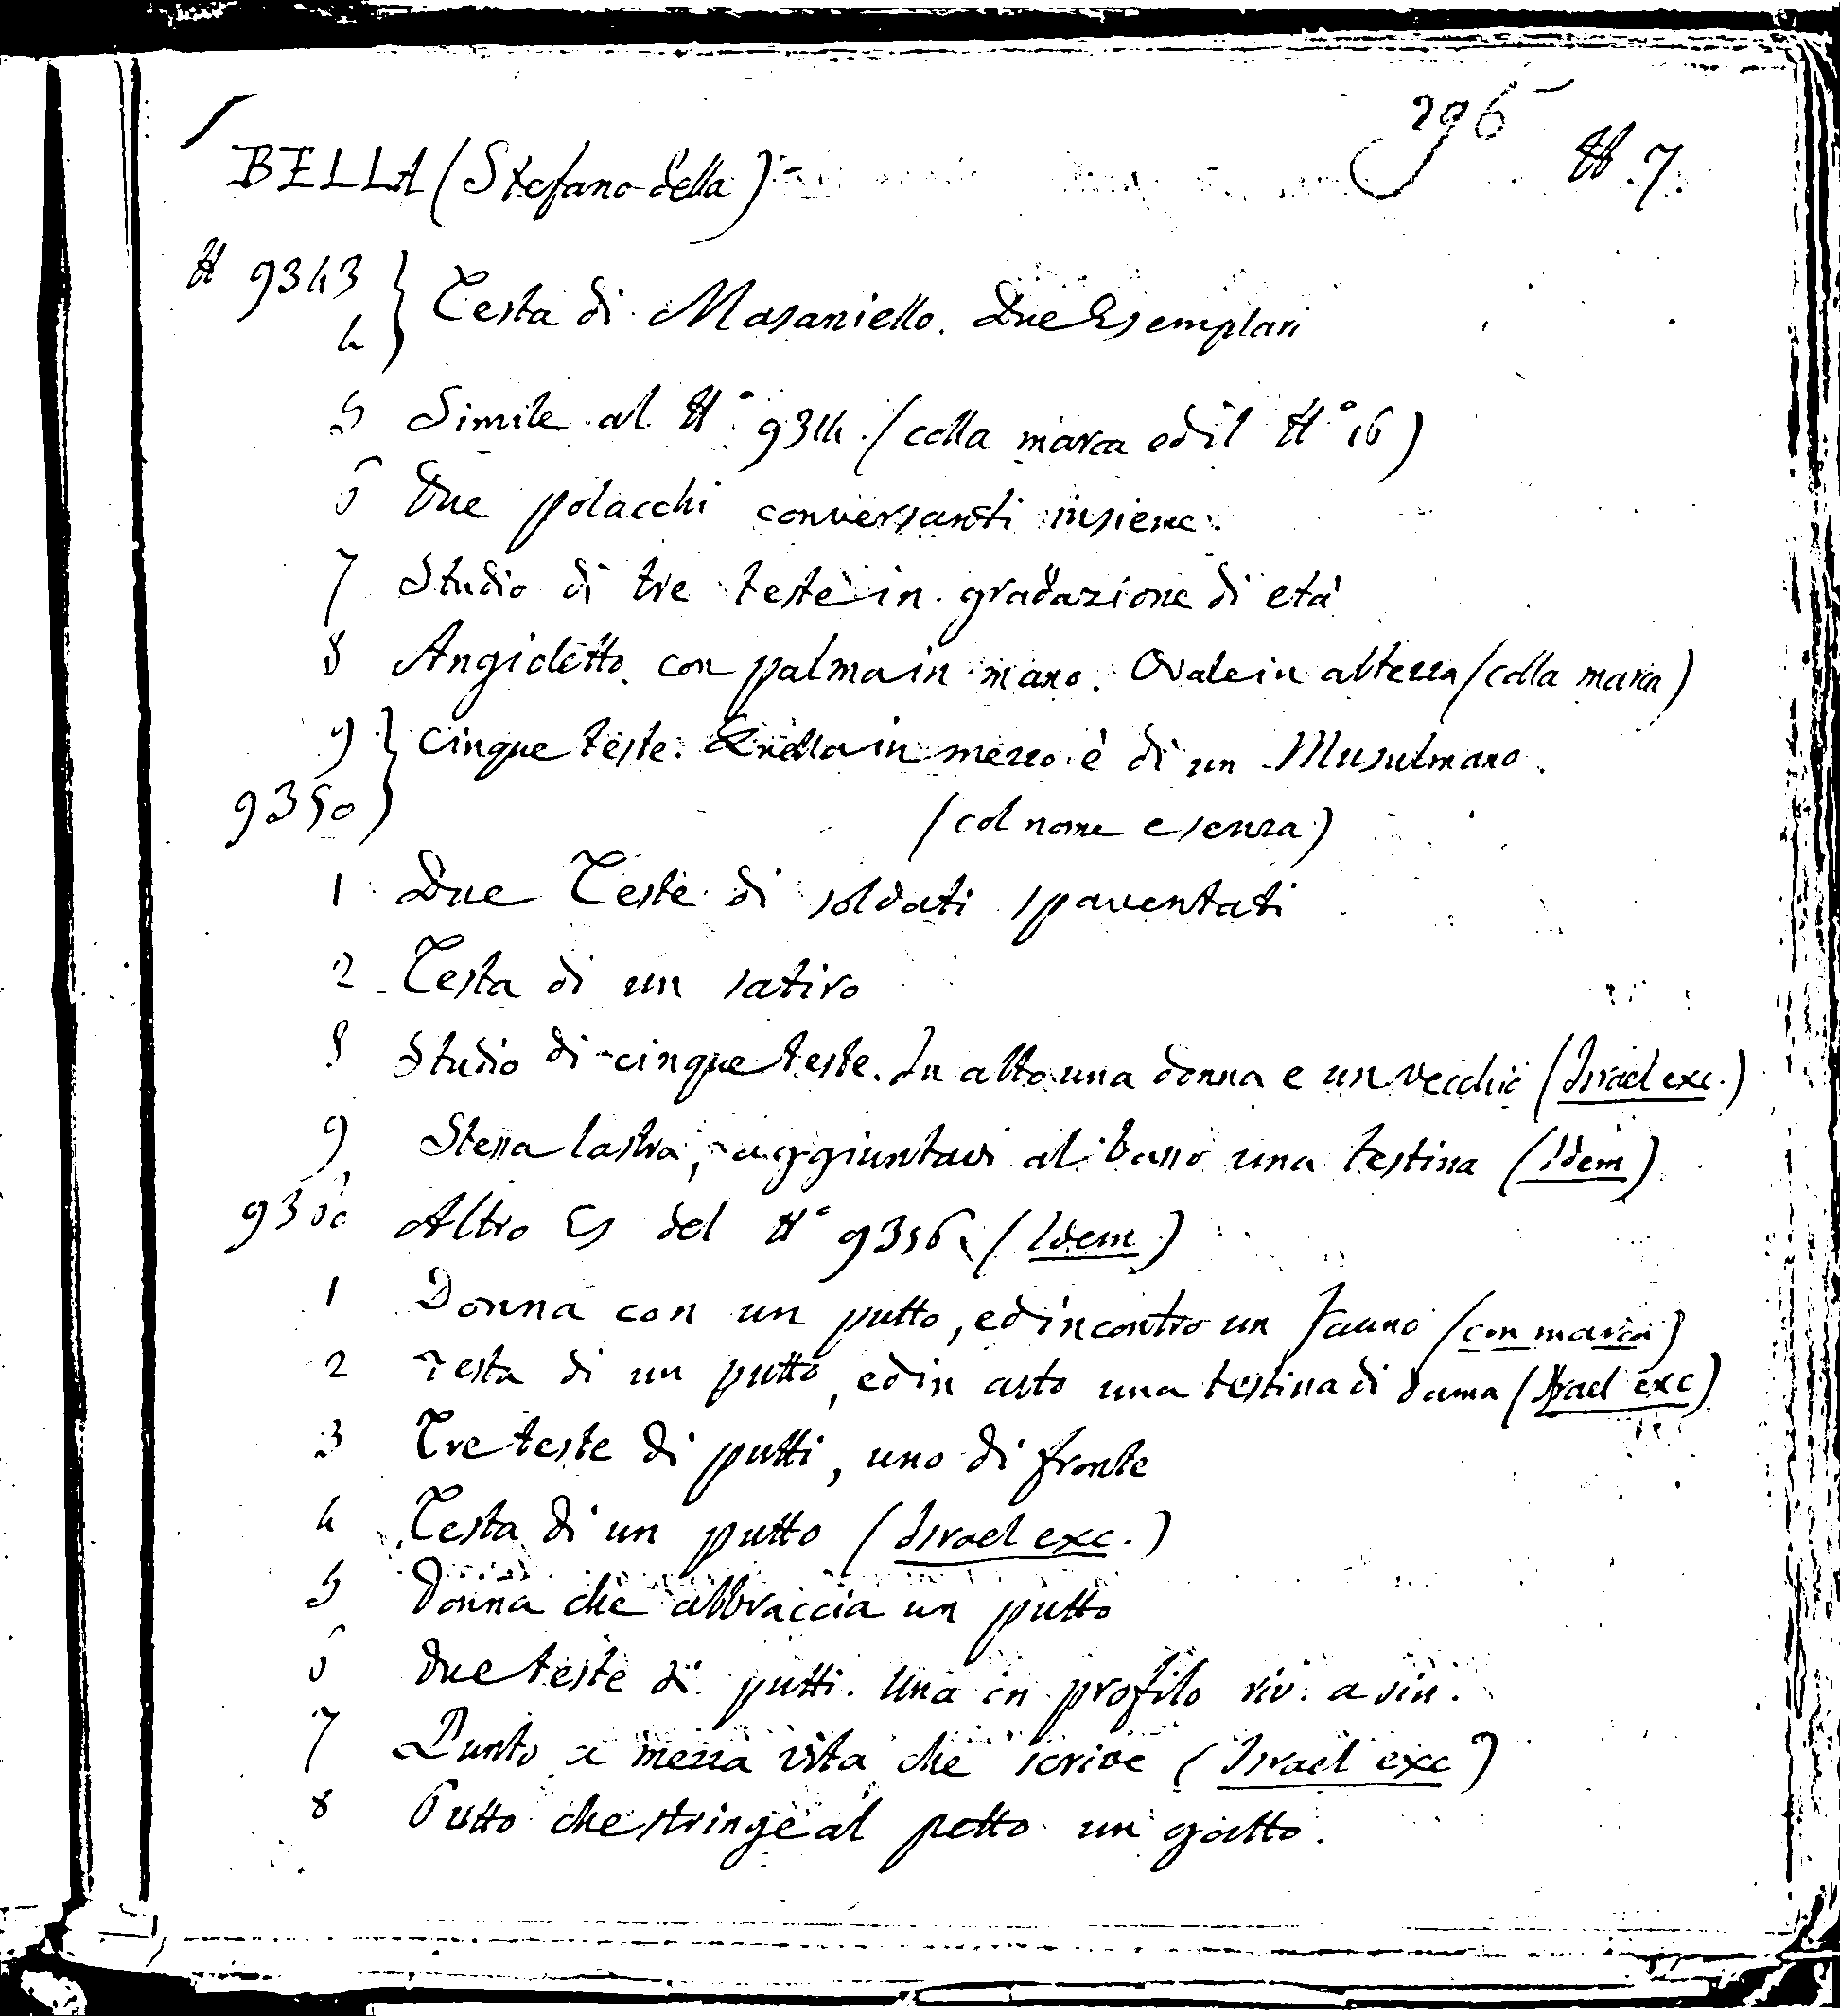 296 N.7.
BELLA (Stefano della)
N 9343 } Testa di Masaniello. Due Esemplari
4
5 Simile al N° 9344. (colla marca ed il N° 16)
6 Due polacchi conversanti insieme.
7 Studio di tre teste in gradazione di età
8 Angioletto con palma in mano. Ovale in altezza (colla marca)
9 } Cinque teste. Quella in mezzo è di un Musulmano.
9350 (col nome e senza)
1 Due Teste di soldati spaventati
2 Testa di un satiro
8 Studio di cinque teste. In alto una donna e un vecchio (Israel exc.)
9 Stessa lastra, aggiuntavi al basso una testina (Idem)
9360 Altro Es del N° 9356. (Idem)
1 Donna con un putto, ed incontro un Fauno (con marca)
2 Testa di un putto, ed in alto una testina di dama (Israel exc)
3 Tre teste di putti, uno di fronte
4 Testa di un putto (Israel exc.)
5 Donna che abbraccia un putto
6 Due teste di putti. Una in profilo riv. a sin.
7 Punto a mezza vita che scrive (Israel exc)
8 Putto che stringe al petto un gatto.